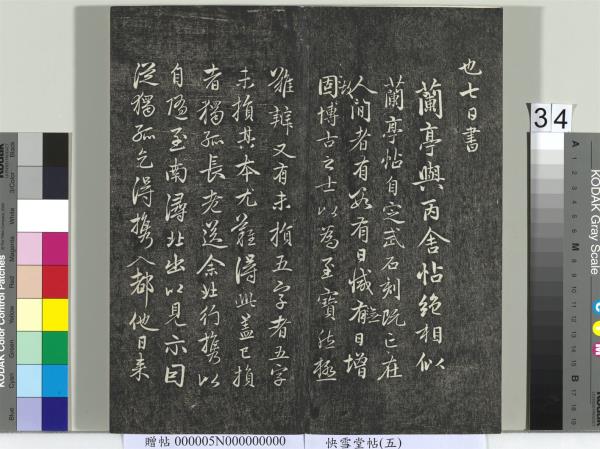 也七日書
蘭亭與丙舍帖絕相似
蘭亭帖自定武石刻既亡在
人間者有數有日減有無日增
固故博古之士以為至寶然極
難辯又有未損五字者五字
未損其本尤難得此蓋已損
者獨孤長老送余北行攜以
自隨至南潯北出以見示因
從獨孤乞得攜入都他日來
34
KODAK Color Control Patches
Blue
Cyan
Green
Yellow
Red
Magenta
White
3/Color
Black
KODAK Gray Scale
A 1 2 3 4 5 6 M 8 9 10 11 12 13 14 15 B 17 18 19
C
Y
M
贈帖 000005N000000000
快雪堂帖(五)